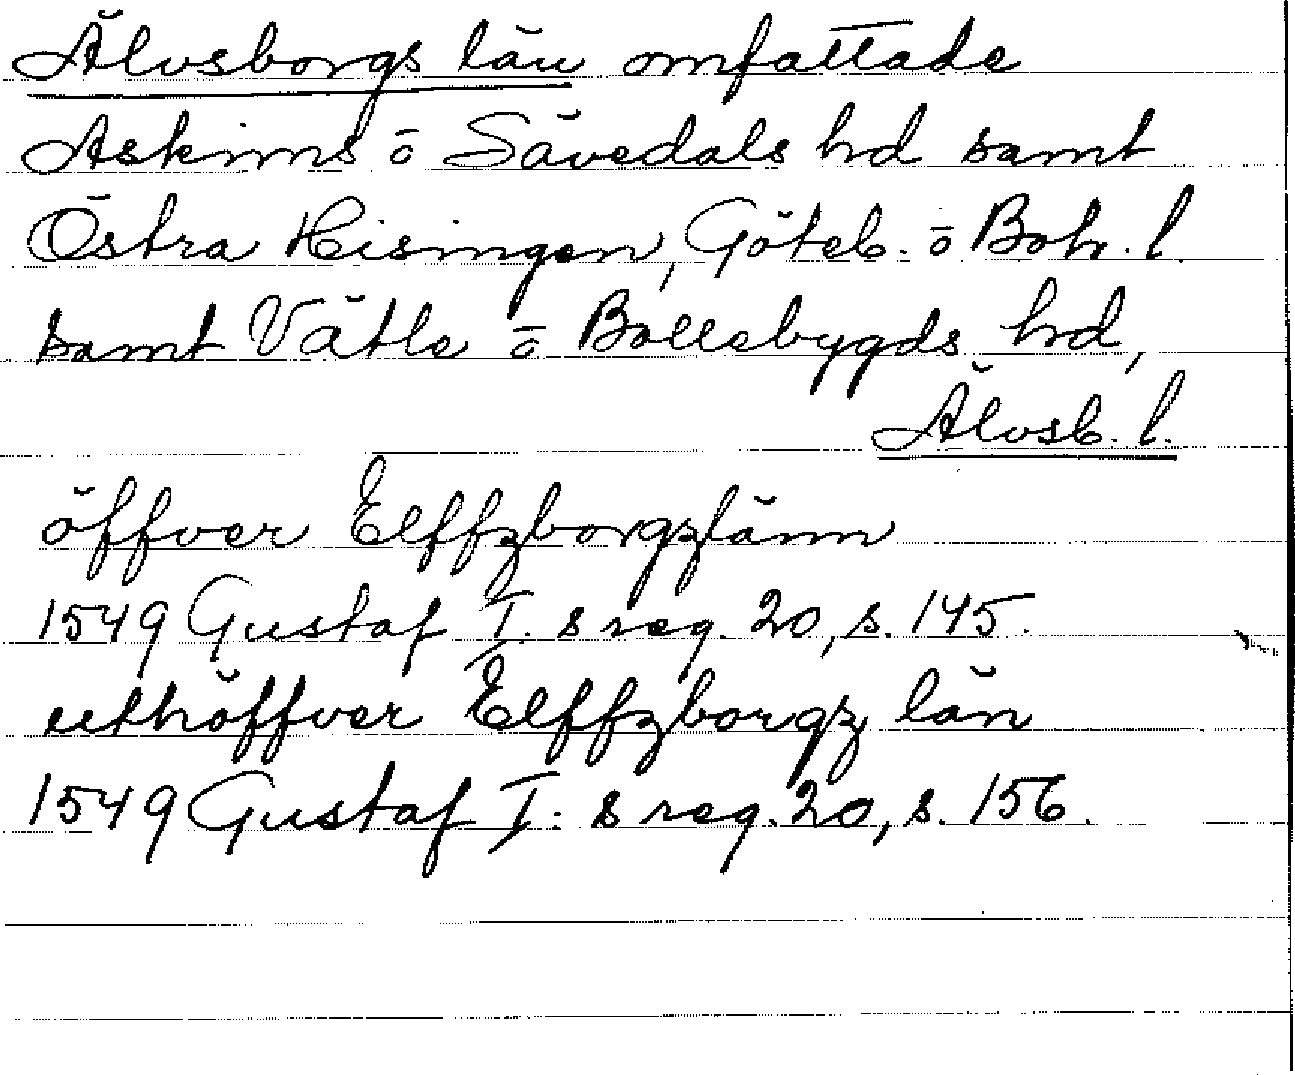 Älvsborgs län omfattade
Askims o Sävedals hd samt
Östra Hisingen, Göteb. o Boh. l.
samt Vätle o Bollebygds hd,
Älvsb. l.
öffver Elffzborgzlänn
1549 Gustaf I. s reg. 20, s. 145.
uthöffver Elffzborgz län
1549 Gustaf I. s reg. 20, s. 156.